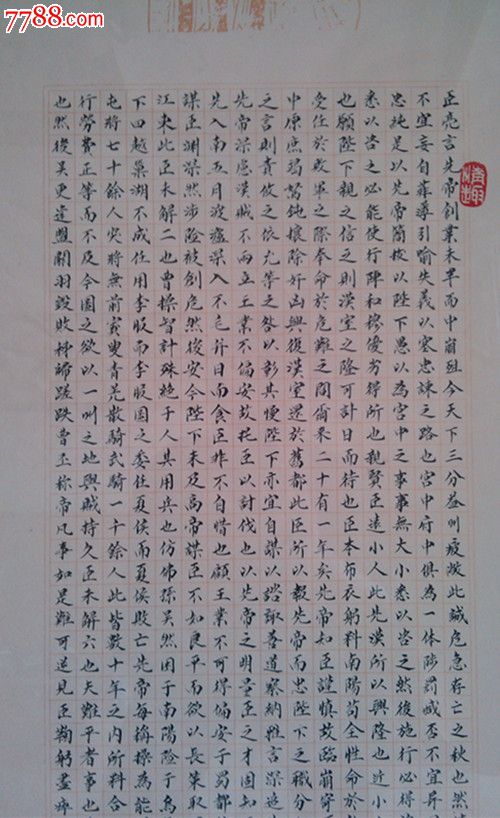 7788.com
臣亮言先帝創業未半而中崩殂今天下三分益州疲敝此誠危急存亡之秋也然
不宜妄自菲薄引喻失義以塞忠諫之路也宮中府中俱為一體陟罰臧否不宜異
忠純是以先帝簡拔以陛下愚以為宮中之事事無大小悉以咨之然後施行必得
悉以咨之必能使行陣和穆優劣得所也親賢臣遠小人此先漢所以興隆也近小
也願陛下親之信之則漢室之隆可計日而待也臣本布衣躬耕南陽苟全性命於
受任於敗軍之際奉命於危難之間爾來二十有一年矣先帝知臣謹慎故臨崩寄
中原庶竭駑鈍攘除奸凶興復漢室還於舊都此臣所以報先帝而忠陛下之職分
之言則責攸之依允等之咎以彰其慢陛下亦宜自謀以諮諏善道察納雅言深追
先帝深慮漢賊不兩立王業不偏安故託臣以討伐也以先帝之明量臣之才固知
先入南五月渡瀘深入不毛并日而食臣非不自惜也顧王業不可得偏安于蜀都
謀臣淵深然涉險被創危然後安今陛下未及高帝謀臣不如良平而欲以長策取
江東此臣未解二也曹操智計殊絕于人其用兵也仿佛孫吳然困于南陽險于烏
下四越巢湖不成任用李服而李服圖之委任夏侯而夏侯敗亡先帝每稱操為能
屯將七十餘人突將無前賨叟青羌散騎武騎一千餘人此皆數十年之內所糾合
行勞費正等而不及今圖之欲以一州之地與賊持久臣未解六也夫難平者事也
也然後吳更違盟關羽毀敗秭歸蹉跌曹丕稱帝凡事如是難可逆見臣鞠躬盡瘁